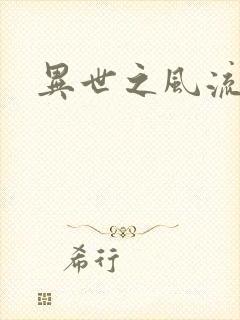 異世之風流
希行